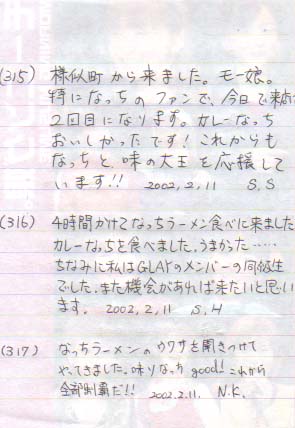 (315) 様似町から来ました。モー娘。
特になっちのファンで、今日で来店
2回目になります。カレーなっち
おいしかったです!これからも
なっちと、味の大王を応援して
います!! 2002,2,11 S.S
(316) 4時間かけてなっちラーメン食べに来ました
カレーなっちを食べました。うまかった……
ちなみに私はGLAYのメンバーの同級生
でした。また機会があれば来たいと思い
ます。2002,2,11 S,H
(317) なっちラーメンのウワサを聞きつけて
やってきました。味りなっちgood!これから
全部制覇だ!! 2002.2.11. N.K.